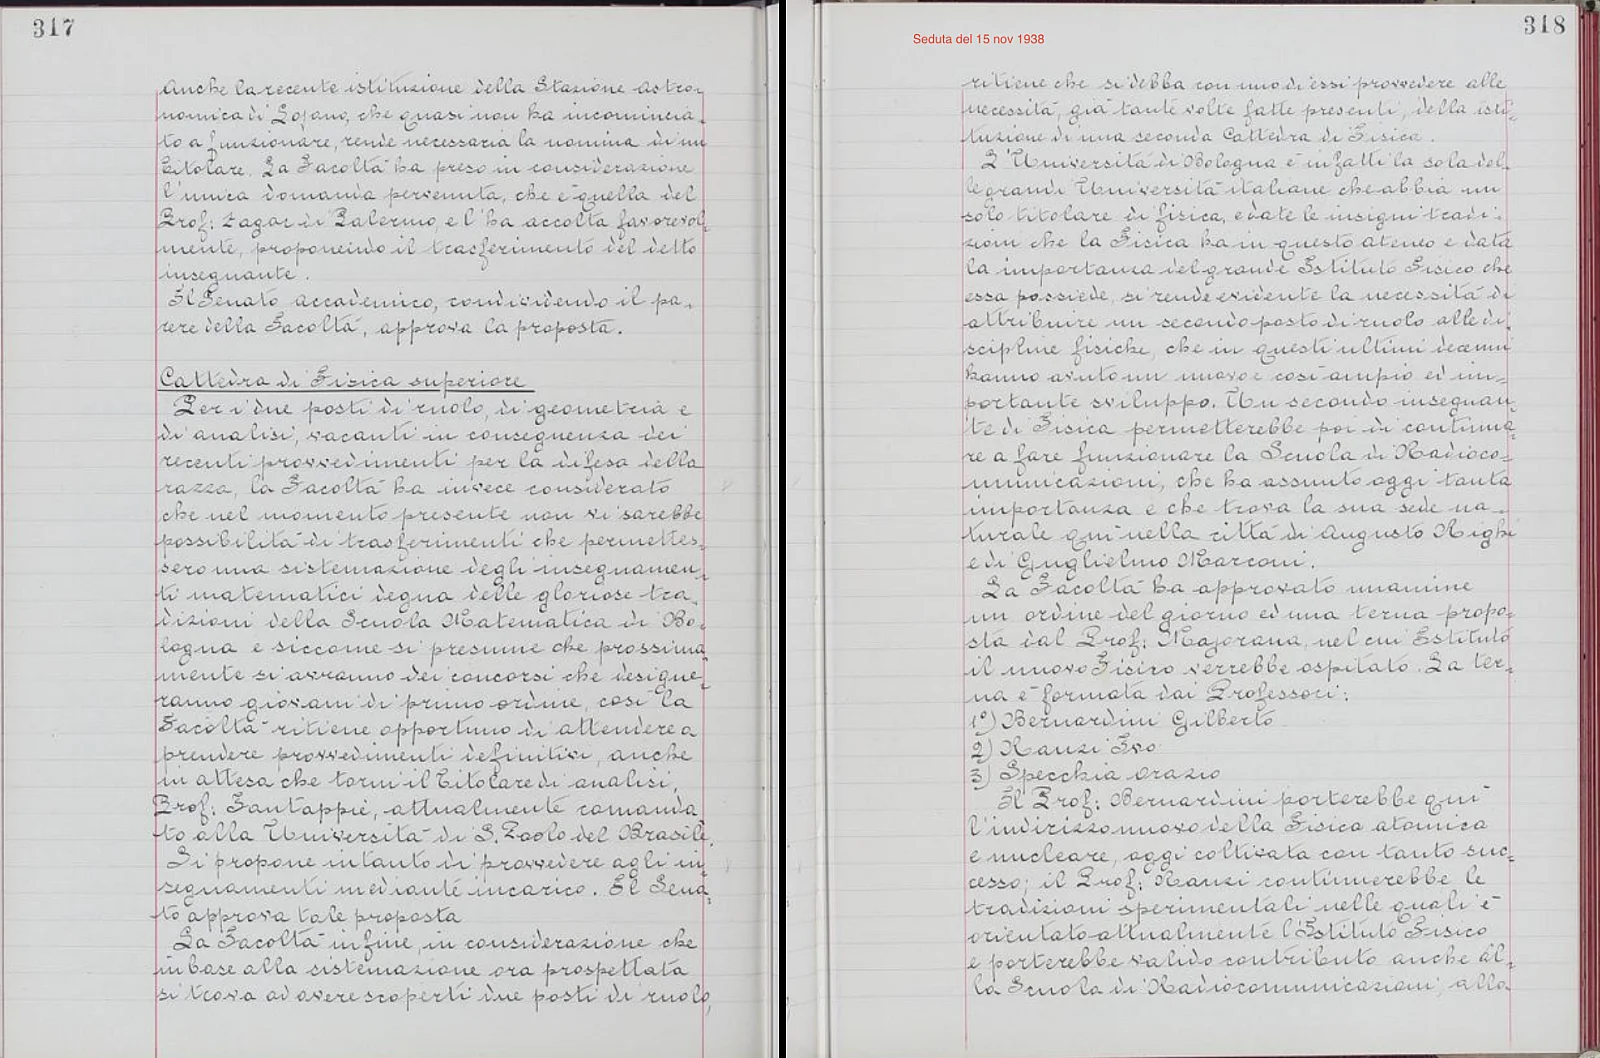 317
Anche la recente istituzione della Stazione Astro-
nomica di Lojano, che quasi non ha incomincia-
to a funzionare, rende necessaria la nomina di un
titolare. La Facoltà ha preso in considerazione
l'unica domanda pervenuta, che è quella del
Prof: Zagar di Palermo, e l'ha accolta favorevol-
mente, proponendo il trasferimento del detto
insegnante.
Il Senato accademico, condividendo il pa-
rere della Facoltà, approva la proposta.
Cattedra di Fisica superiore
Per i due posti di ruolo, di geometria e
di analisi, vacanti in conseguenza dei
recenti provvedimenti per la difesa della
razza, la Facoltà ha invece considerato
che nel momento presente non vi sarebbe
possibilità di trasferimenti che permettes-
sero una sistemazione degli insegnamen-
ti matematici degna delle gloriose tra-
dizioni della Scuola Matematica di Bo-
logna e siccome si presume che prossima-
mente si avranno dei concorsi che designe-
ranno giovani di primo ordine, così la
Facoltà ritiene opportuno di attendere a
prendere provvedimenti definitivi, anche
in attesa che torni il titolare di analisi,
Prof: Fantappié, attualmente comanda-
to alla Università di S. Paolo del Brasile.
Si propone intanto di provvedere agli in-
segnamenti mediante incarico. Il Sena-
to approva tale proposta
La Facoltà infine, in considerazione che
in base alla sistemazione ora prospettata
si trova ad avere scoperti due posti di ruolo,
Seduta del 15 nov 1938
318
ritiene che si debba con uno di essi provvedere alle
necessità, già tante volte fatte presenti, della isti-
tuzione di una seconda Cattedra di Fisica.
L'Università di Bologna è infatti la sola del-
le grandi Università italiane che abbia un
solo titolare di fisica, e date le insigni tradi-
zioni che la Fisica ha in questo ateneo e data
la importanza del grande Istituto Fisico che
essa possiede, si rende evidente la necessità di
attribuire un secondo posto di ruolo alle di-
scipline fisiche, che in questi ultimi decenni
hanno avuto un nuovo e così ampio ed im-
portante sviluppo. Un secondo insegnan-
te di Fisica permetterebbe poi di continua-
re a fare funzionare la Scuola di Radioco-
municazioni, che ha assunto oggi tanta
importanza e che trova la sua sede na-
turale qui nella città di Augusto Righi
e di Guglielmo Marconi.
La Facoltà ha approvato unanime
un ordine del giorno ed una terna propo-
sta dal Prof: Majorana, nel cui Istituto
il nuovo Fisico verrebbe ospitato. La ter-
na è formata dai Professori:
1°) Bernardini Gilberto
2) Ranzi Ivo
3) Specchia Orazio
Il Prof: Bernardini porterebbe qui
l'indirizzo nuovo della Fisica atomica
e nucleare, oggi coltivata con tanto suc-
cesso; il Prof: Ranzi continuerebbe le
tradizioni sperimentali nelle quali è
orientato attualmente l'Istituto Fisico
e porterebbe valido contributo anche al-
la Scuola di Radiocomunicazioni, alla